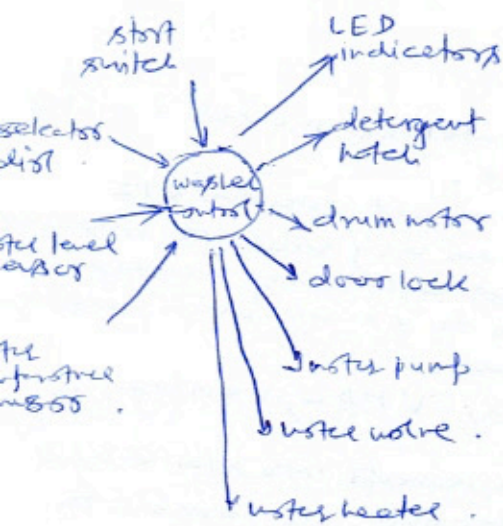 start
switch
LED
indicators
selector
dial.
detergent
hatch
washer
control
drum motor
water level
sensor
door lock
water
temperature
sensor.
water pump
water valve.
water heater.